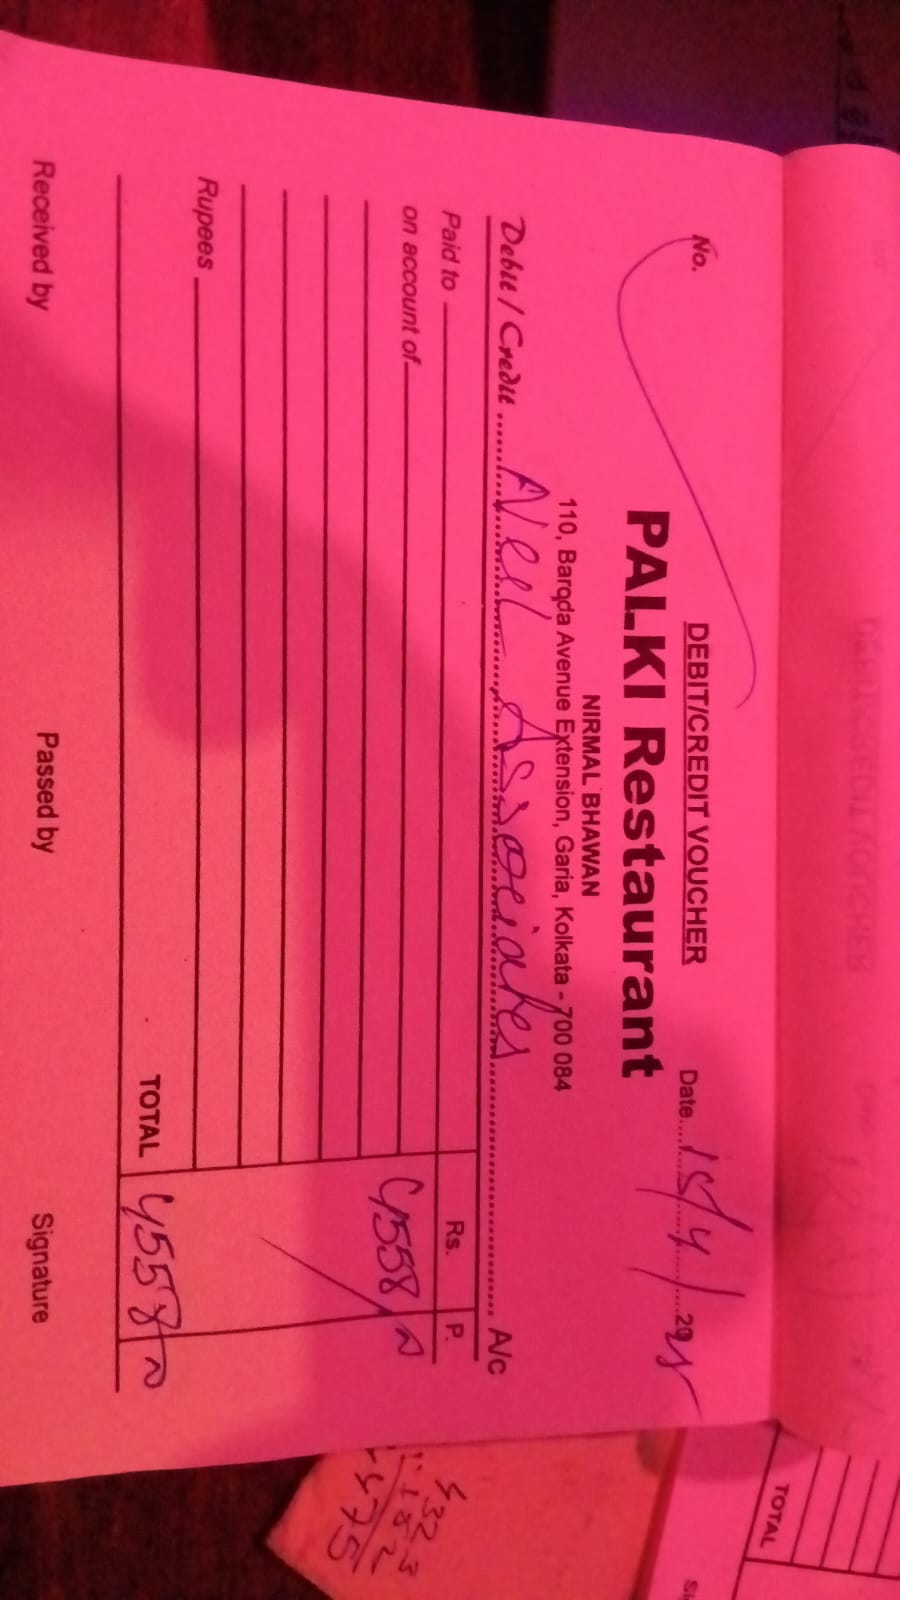 DEBIT/CREDIT VOUCHER
No. Date 15/4/2025
PALKI Restaurant
NIRMAL BHAWAN
110, Baroda Avenue Extension, Garia, Kolkata - 700 084
Debit / Credit Neel Associates A/c
Paid to Rs. P.
on account of 4558
Rupees
TOTAL 4558
Received by Passed by Signature
TOTAL